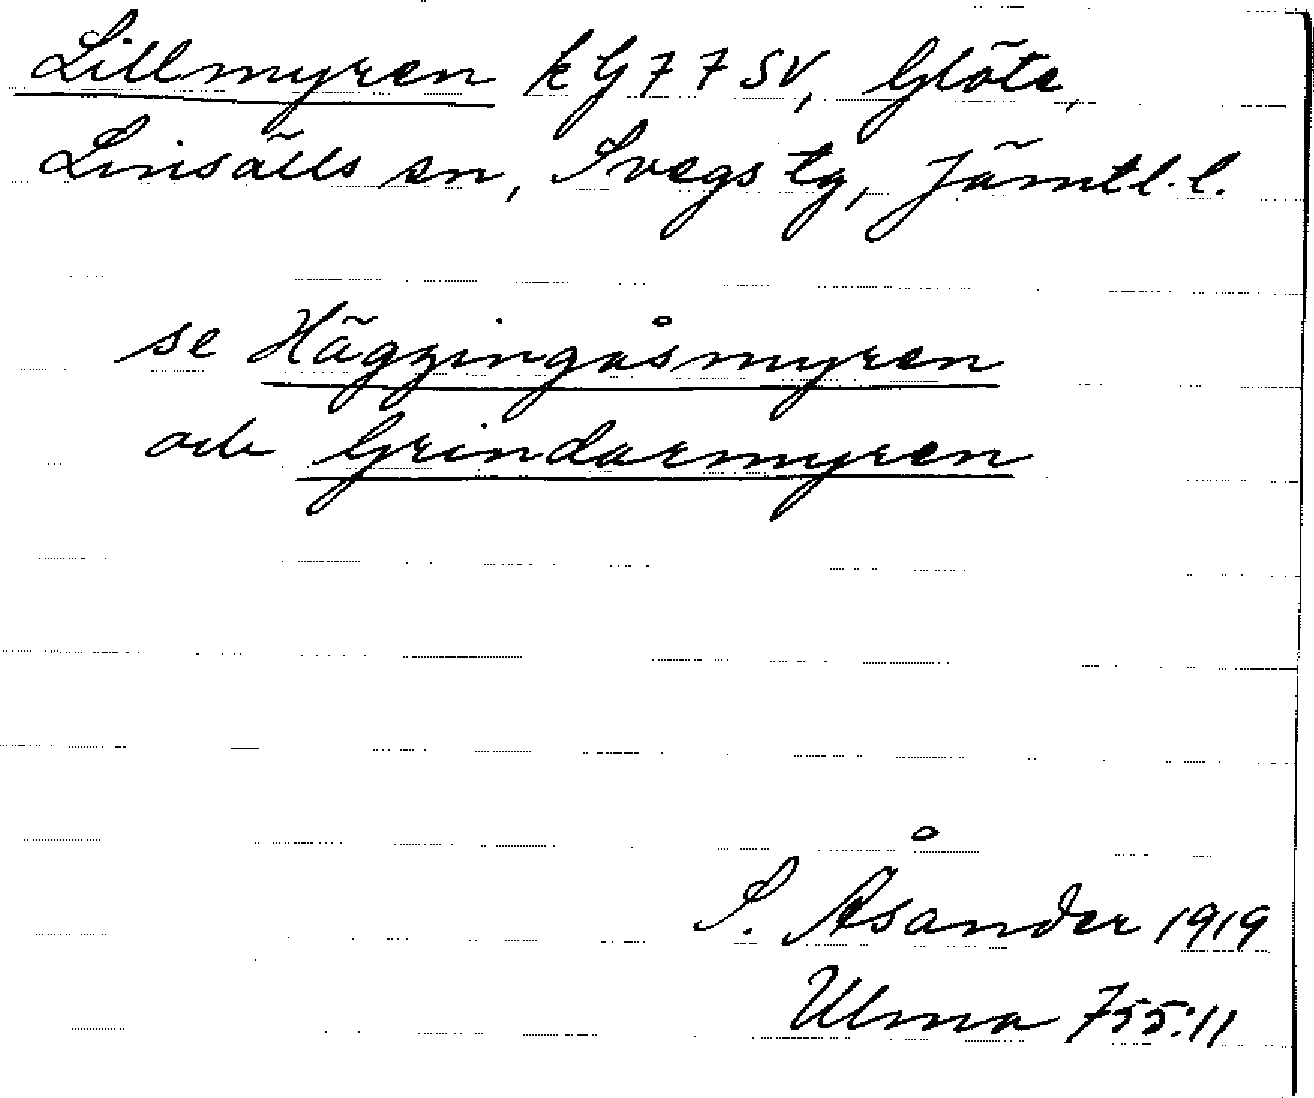 Lillmyren kG77SV, Glöte,
Linsälls sn, Svegs tg, Jämtl.l.
se Häggingåsmyren
och Grindarmyren
S. Åsander 1919
Ulma 755:11